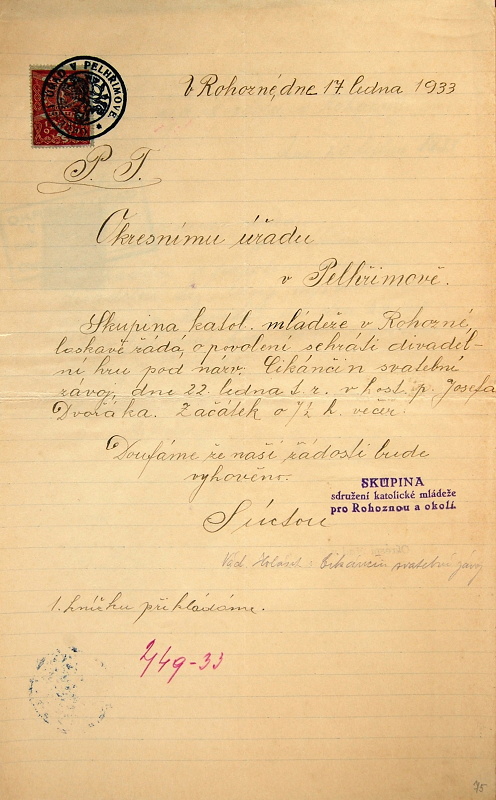 V Rohozné, dne 17. ledna 1933
V PELHŘIMOVĚ
P. T.
Okresnímu úřadu
v Pelhřimově.
Skupina katol. mládeže v Rohozné,
laskavě řádá, o povolení sehráti divadel-
ní hru pod názv: Cikánčin svatební
závoj, dne 22. ledna t. r. v host. p. Josefa
Dvořáka. Začátek o ½ h. večer.
Doufáme že naší řádosti bude
vyhověno.
SKUPINA
sdružení katolické mládeže
pro Rohoznou a okolí.
S úctou
Cikánčin svatební závoj
1. knížku přikládáme.
2/49-33
75